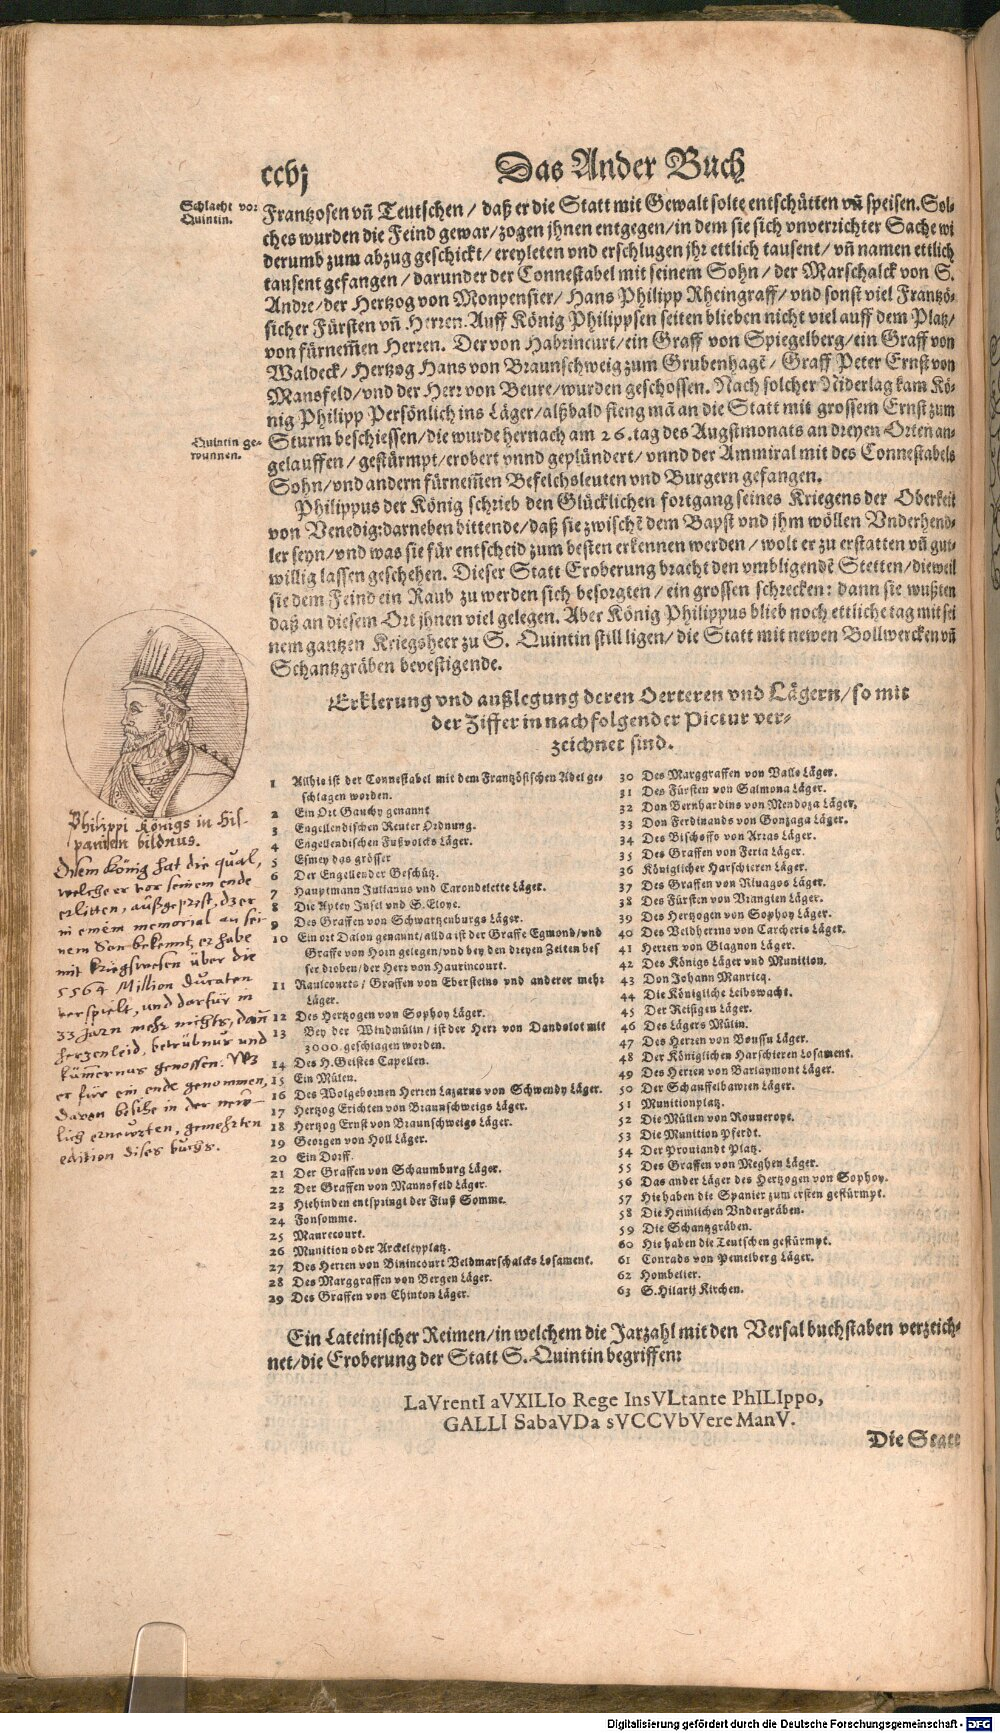 ccvj
Das Ander Buch
Schlacht vor
Quintin.
Frantzosen vñ Teutschen / daß er die Statt mit Gewalt solte entschütten vñ speisen. Sol-
ches wurden die Feind gewar / zogen jhnen entgegen / in dem sie sich vnverrichter Sache wi
derumb zum abzug geschickt / ereyleten vnd erschlugen jhr ettlich tausent / vñ namen ettlich
tausent gefangen / darunder der Connestabel mit seinem Sohn / der Marschalck von S.
Andre / der Hertzog von Monpensier / Hans Philipp Rheingraff / vnd sonst viel Frantzö-
sicher Fürsten vñ Herren. Auff König Philippsen seiten blieben nicht viel auff dem Platz /
von fürnem̃en Herren. Der von Habrincurt / ein Graff von Spiegelberg / ein Graff von
Waldeck / Hertzog Hans von Braunschweig zum Grubenhagẽ / Graff Peter Ernst von
Mansfeld / vnd der Herr von Beure / wurden geschossen. Nach solcher Niderlag kam Kö-
nig Philipp Persönlich ins Läger / alßbald fieng mã an die Statt mit grossem Ernst zum
Quintin ge-
wunnen.
Sturm beschiessen / die wurde hernach am 26. tag des Augstmonats an dreyen Orten an-
gelauffen / gestürmpt / erobert vnnd geplündert / vnnd der Ammiral mit des Connestabels
Sohn / vnd andern fürnem̃en Befelchsleuten vnd Burgern gefangen.
Philippus der König schrieb den Glücklichen fortgang seines Kriegens der Oberkeit
von Venedig: darneben bittende / daß sie zwischẽ dem Bapst vnd jhm wöllen Vnderhend-
ler seyn / vnd was sie für entscheid zum besten erkennen werden / wolt er zu erstatten vñ gut-
willig lassen geschehen. Dieser Statt Eroberung bracht den vmbligendẽ Stetten / dieweil
sie dem Feind ein Raub zu werden sich besorgten / ein grossen schrecken: dann sie wußten
daß an diesem Ort jhnen viel gelegen. Aber König Philippus blieb noch ettliche tag mit sei
nem gantzen Kriegsheer zu S. Quintin still ligen / die Statt mit newen Bollwercken vñ
Schantzgräben bevestigende.
Erklerung vnd außlegung deren Oerteren vnd Lägern / so mit
der Ziffer in nachfolgender Pictur ver-
zeichnet sind.
Philippi Königs in His-
panien bildnus.
Disem König hat die qual,
welche er vor seinem ende
erlitten, außgeprist, dz er
in einem memorial an sei
nem Son bekennt, er habe
mit kriegswesen über die
5564 Million duraten
verspielt, und darfür in
33 Jarn mehr nichts, dañ
herzenleid, betrübnus und
kümernus genossen. Wz
er für ein ende genommen,
davon besihe in der new-
lich ernewrten, gemehrten
edition dises buchs.
1 Allhie ist der Connestabel mit dem Frantzösischen Adel ge-
schlagen worden.
2 Ein Ort Gauchy genannt
3 Engellendischen Reuter Ordnung.
4 Engellendischen Fußvolcks Läger.
5 Esmey das grösser
6 Der Engellender Geschütz.
7 Hauptmann Julianus vnd Carondelette Läger.
8 Die Aptey Insel vnd S. Eloye.
9 Des Graffen von Schwartzenburgs Läger.
10 Ein ort Dalon genannt / allda ist der Graffe Egmond / vnd
Graffe von Horn gelegen / vnd bey den dreyen Zelten bes
ser droben / der Herr von Haurincourt.
11 Raulcourts / Graffen von Ebersteins vnd anderer mehr
Läger.
12 Des Hertzogen von Sophoy Läger.
13 Bey der Windmülin / ist der Herr von Dandolot mit
3000. geschlagen worden.
14 Des H. Geistes Capellen.
15 Ein Mülen.
16 Des Wolgebornen Herren Lazarus von Schwendy Läger.
17 Hertzog Erichten von Braunschweigs Läger.
18 Hertzog Ernst von Braunschweigs Läger.
19 Georgen von Holl Läger.
20 Ein Dorff.
21 Der Graffen von Schaumburg Läger.
22 Der Graffen von Mannsfeld Läger.
23 Hiehinden entspringt der Fluß Somme.
24 Fonsomme.
25 Maurecourt.
26 Munition oder Arckeleyplatz.
27 Des Herren von Binincourt Veldmarschalcks Losament.
28 Des Marggraffen von Bergen Läger.
29 Des Graffen von Chinton Läger.
30 Des Marggraffen von Valls Läger.
31 Des Fürsten von Salmona Läger.
32 Don Bernhardins von Mendoza Läger.
33 Don Ferdinands von Gonzaga Läger.
34 Des Bischoffs von Arras Läger.
35 Des Graffen von Feria Läger.
36 Königlicher Harschieren Läger.
37 Des Graffen von Rivagos Läger.
38 Des Fürsten von Vranglen Läger.
39 Des Hertzogen von Sophoy Läger.
40 Des Veldherrns von Carcheris Läger.
41 Herren von Glagnon Läger.
42 Des Königs Läger vnd Munition.
43 Don Johann Manricq.
44 Die Königliche Leibswacht.
45 Der Reisigen Läger.
46 Des Lägers Mülin.
47 Des Herren von Boussu Läger.
48 Der Königlichen Harschieren Losament.
49 Des Herren von Barlaymont Läger.
50 Der Schauffelbawren Läger.
51 Munitionplatz.
52 Die Müllen von Rouueroye.
53 Die Munition Pferdt.
54 Der Prouiandt Platz.
55 Des Graffen von Meghen Läger.
56 Das ander Läger des Hertzogen von Sophoy.
57 Hie haben die Spanier zum ersten gestürmpt.
58 Die Heimlichen Vndergräben.
59 Die Schantzgräben.
60 Hie haben die Teutschen gestürmpt.
61 Conrads von Pemelberg Läger.
62 Hombelier.
63 S. Hilarij Kirchen.
Ein Lateinischer Reimen / in welchem die Jarzahl mit den Versal buchstaben verzeich-
net / die Eroberung der Statt S. Quintin begriffen:
LaVrentI aVXILIo Rege InsVLtante PhILIppo,
GALLI SabaVDa sVCCVbVere ManV.
Die Statt
Digitalisierung gefördert durch die Deutsche Forschungsgemeinschaft - DFG